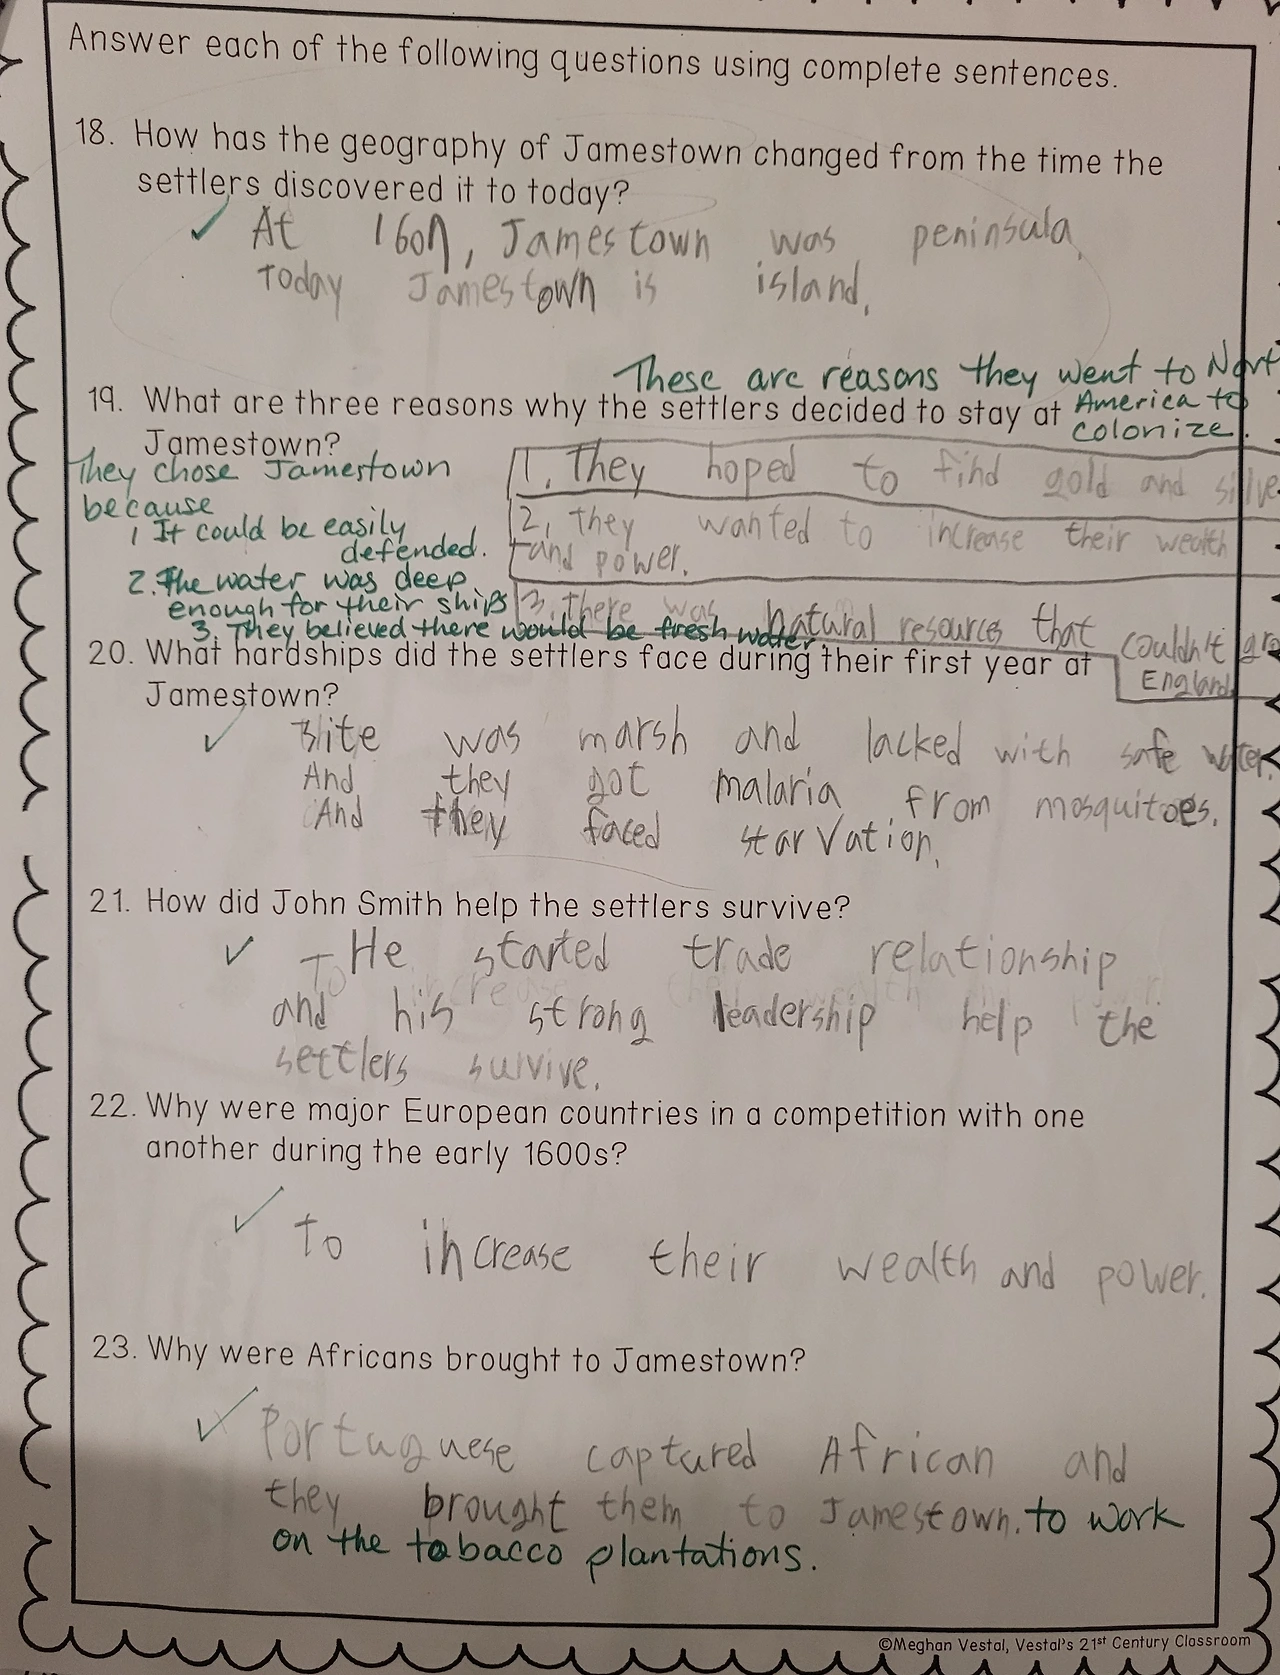 Answer each of the following questions using complete sentences.
18. How has the geography of Jamestown changed from the time the
settlers discovered it to today?
✓ At 1607, Jamestown was peninsula.
Today Jamestown is island.
These are reasons they went to Nort
America to
colonize.
19. What are three reasons why the settlers decided to stay at
Jamestown?
They chose Jamestown
because
1 It could be easily
defended.
2. The water was deep
enough for their ships
3. They believed there would be fresh water.
1. They hoped to find gold and silve
2. they wanted to increase their wealth
and power.
3. there was natural resources that couldn't gro
England.
20. What hardships did the settlers face during their first year at
Jamestown?
✓ Site was marsh and lacked with safe water.
And they got malaria from mosquitoes.
And they faced starvation.
21. How did John Smith help the settlers survive?
✓ He started trade relationship
and his strong leadership help the
settlers survive.
22. Why were major European countries in a competition with one
another during the early 1600s?
✓ To increase their wealth and power.
23. Why were Africans brought to Jamestown?
✓ Portuguese captured African and
they brought them to Jamestown. to work
on the tobacco plantations.
©Meghan Vestal, Vestal's 21st Century Classroom